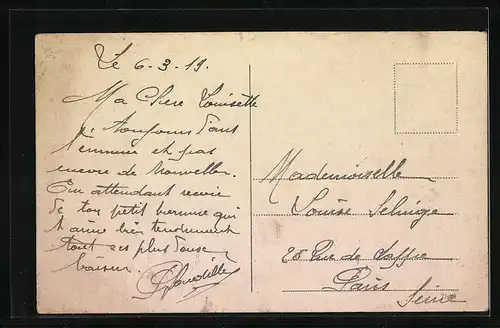 Le 6-3-19.
Ma Chere Louisette
toujours dans
l'ennuie et pas
encore de Nouvelles.
En attendant recois
de ton petit homme qui
t'aime bien tendrement
tout ses plus doux
baiser.
Mademoiselle
Louise
25 Rue de
Paris
Seine